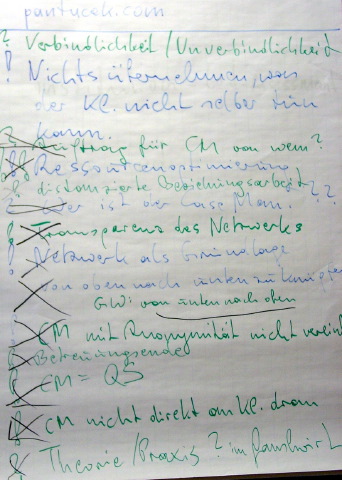 pantucek.com
? Verbindlichkeit / Unverbindlichkeit
! Nichts übernehmen, was
der Kl. nicht selber tun
kann.
? Auftrag für CM von wem?
Ressourcenoptimierung
distanzierte Beziehungsarbeit
Wer ist der Case Man. ? ?
Transparenz des Netzwerks
! Netzwerk als Grundlage
von oben nach unten zu knüpfen
GW: von unten nach oben
CM mit Anonymität nicht vereinb
Betreuungsende
CM = QS
CM nicht direkt am Kl. dran
Theorie / Praxis ? im